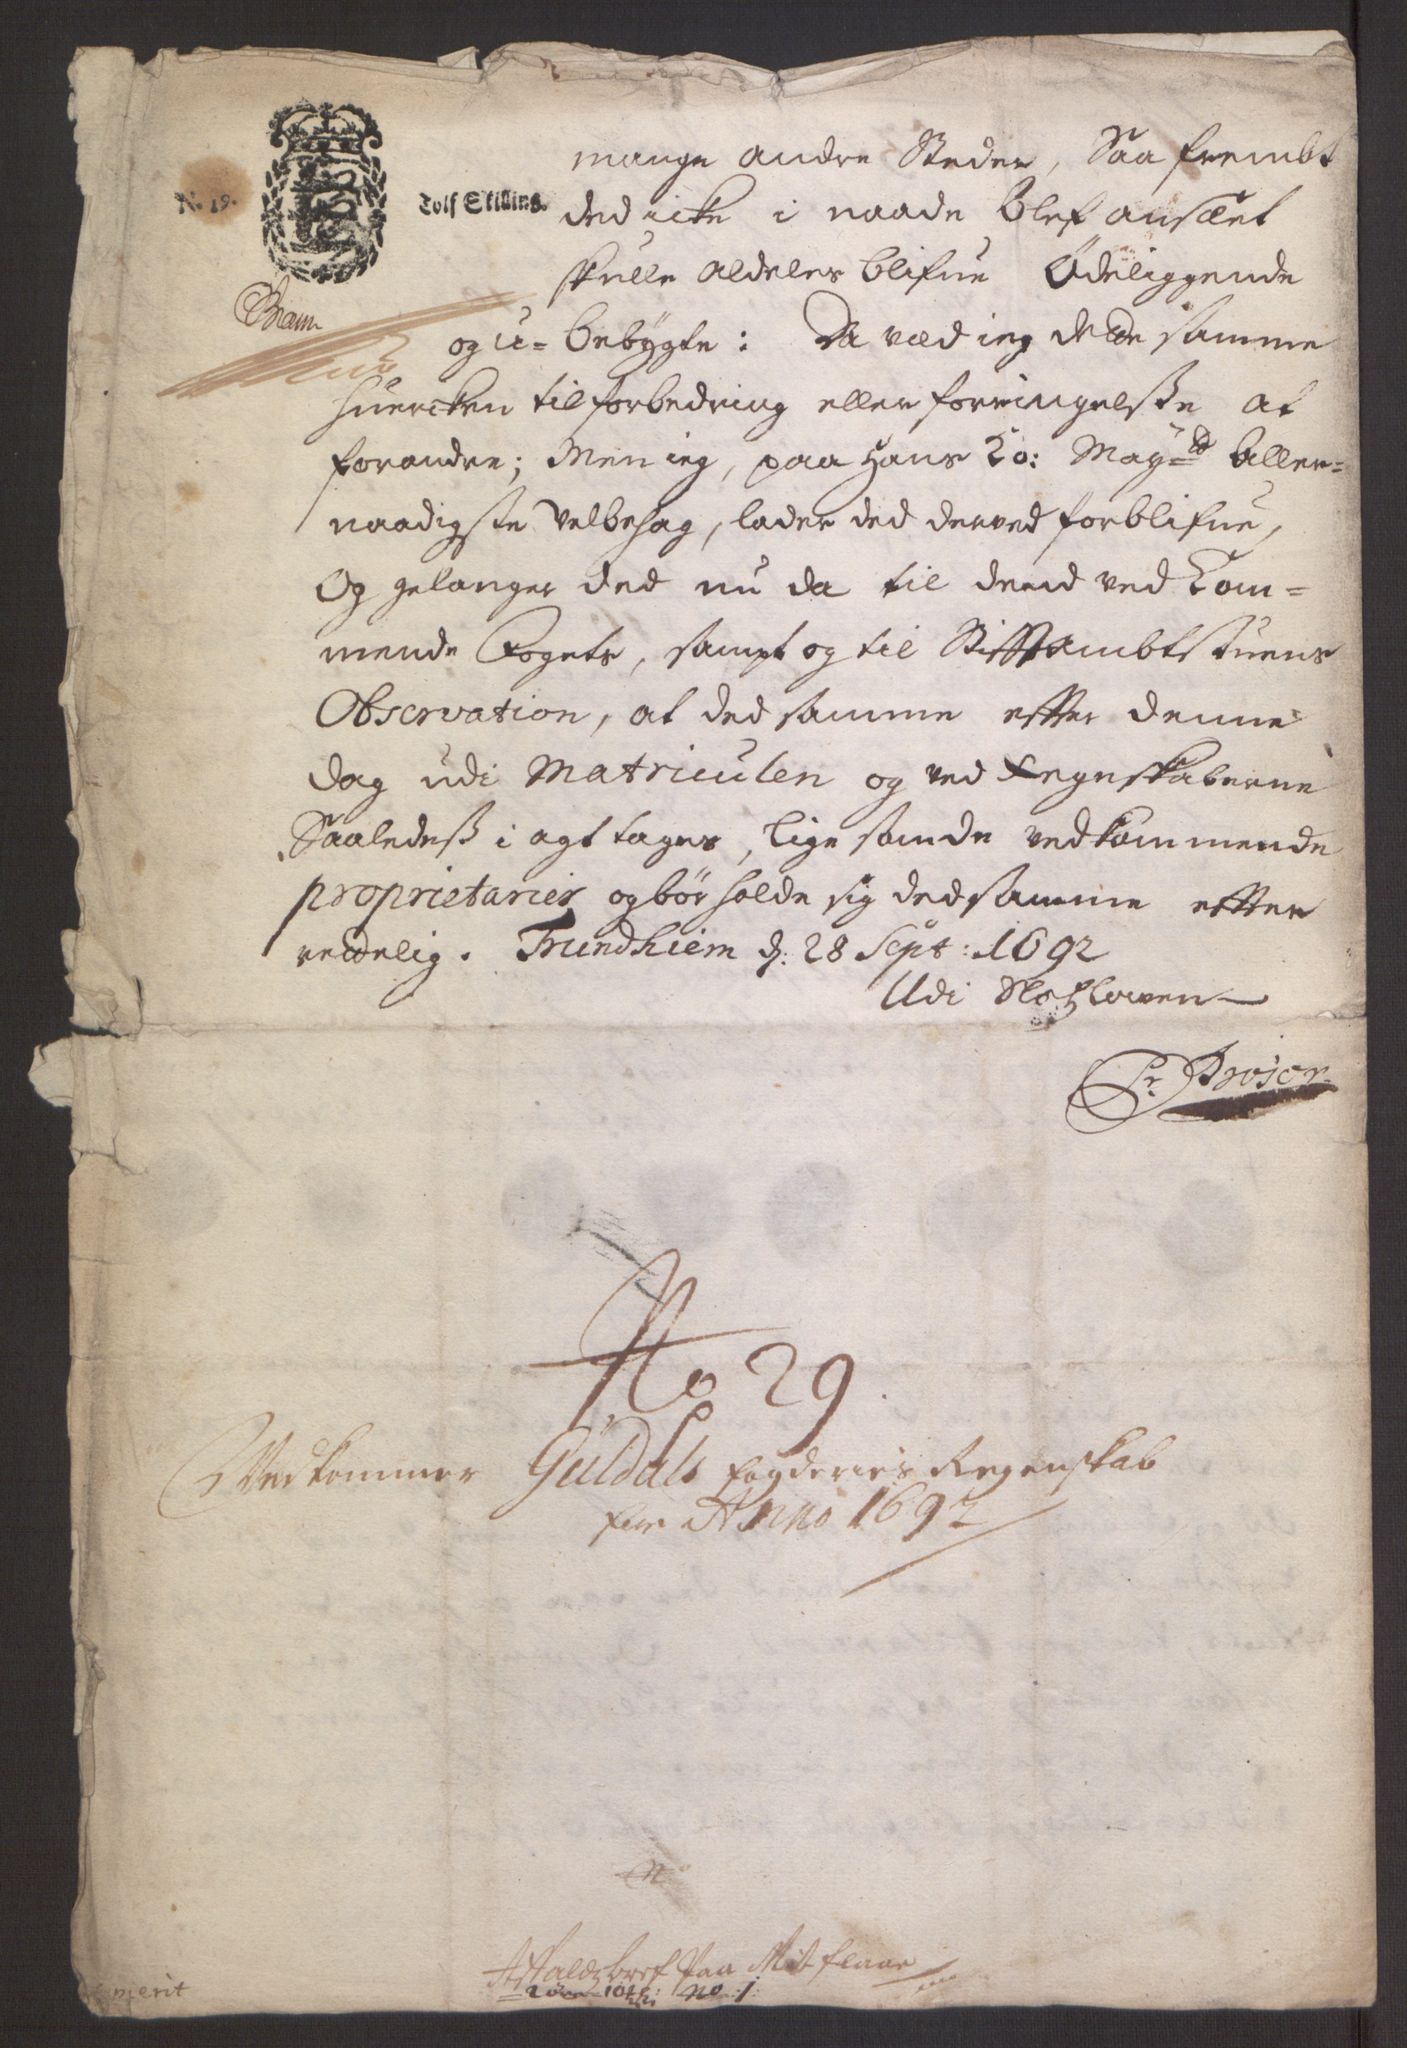 No. 19.
Tolf Skilling.
mange andre Steder, Saa frembt
ded icke i naade blef ansæet
skulle aldeles blifue Ødeliggende
og u-bebygte: Da ved ieg dette samme
huercken til forbedring eller forringelsse at
forandre; Men ieg, paa Hans Ko: Mayts aller-
naadigste Velbehag, lader ded derved forblifue,
Og gelanger ded nu da til dend ved Kom-
mende Fogets, sampt og til Stifftambtstuens
Observation, at ded samme effter denne
dag udi Matriculen og ved Regnskaberne
Saaledess i agt tages, lige som de vedkommende
proprietarier og bør holde sig ded samme effter
rettelig. Trundhiem d: 28 Sept: 1692
Udi Slotzloven
No 29.
Vedkommer Guldals fogderies Regenskab
for Anno 1692
paa
No 1: